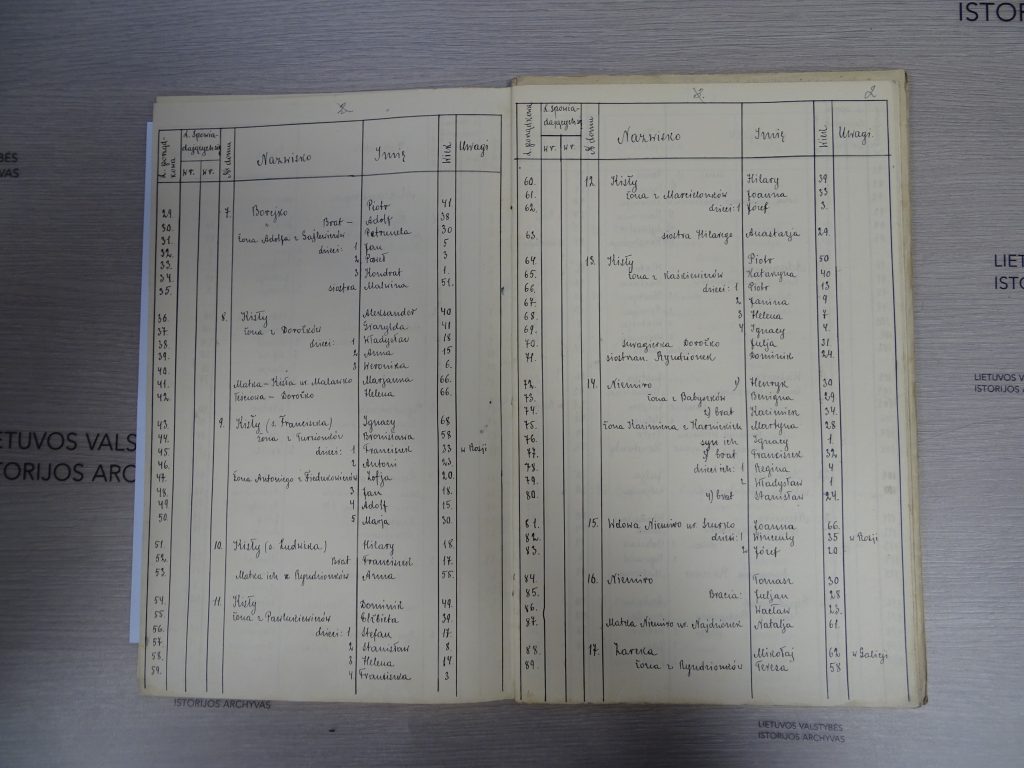 ISTOR
2
2.
2
L. porządkowa
L. spowiadających się
№ domu
Nazwisko
Imię
Wiek
Uwagi
29. 7. Borejko Piotr 41
30. Brat - Adolf 38
31. żona Adolfa z Petrunela 30
32. dzieci: 1 Jan 5
33. 2 Paweł 3
34. 3 Kondrat 1.
35. siostra Malwina 51.
36. 8. Kisły Aleksander 40
37. żona z Dorożków 41
38. dzieci: 1 Władysław 18
39. 2 Anna 15
40. 3 Weronika 6.
41. Matka - Kisła Marjanna 66.
42. Teściowa - Dorożko Helena 66.
43. 9. Kisły (s. Franciszka) Ignacy 68
44. żona z Bronisława 58
45. dzieci: 1 Franciszek 33 w Rosji
46. 2 Antoni 23.
47. żona Antoniego z Zofja 20.
48. 3 Jan 18.
49. 4 Adolf 15.
50. 5 Marja 30.
51. 10. Kisły (s. Ludwika) Hilary 18.
52. Brat Franciszek 17.
53. Matka ich z Ryndzionków Anna 55.
54. 11. Kisły Dominik 49.
55. żona z Elżbieta 39.
56. dzieci: 1 Stefan 17.
57. 2 Stanisław 8.
58. 3 Helena 14
59. 4 Franciszka 3
L. porządkowa
L. spowiadających się
№ domu
Nazwisko
Imię
Wiek
Uwagi
60. 12. Kisły Hilary 39
61. żona z Marcielonków Joanna 33
62. dzieci: 1 Józef 3.
63. siostra Hilarego Anastazja 29.
64. 13. Kisły Piotr 50
65. żona z Kaśkiewiczów Katarzyna 40
66. dzieci: 1 Piotr 13
67. 2 Janina 9
68. 3 Helena 7
69. 4 Ignacy 4.
70. Szwagierka Dorożko Julja 31.
71. siostrzan. Ryndzionek Dominik 24.
72. 14. Niemiro 1) Henryk 30
73. żona z Babyszków Benigna 29
74. 2) brat Kazimierz 34.
75. żona Kazimierza z Karnickich Martyna 28
76. syn ich Ignacy 1.
77. 3) brat Franciszek 32.
78. dzieci ich: 1 Regina 4
79. 2 Władysław 1
80. 4) brat Stanisław 24.
81. 15. Wdowa Niemiro Joanna 66.
82. dzieci: 1 Wincenty 35 w Rosji
83. 2 Józef 20
84. 16. Niemiro Tomasz 30
85. Bracia: Juljan 28
86. Wacław 23.
87. Matka Niemiro Natalja 61.
88. 17. Zareka Mikołaj 62 w Galicji
89. żona z Ryndzionków Tereza 58
LIETUVOS VALS
ISTORIJOS ARC
ISTORIJOS ARCHYVAS
LIETUVOS VALSTYBĖS
ISTORIJOS ARCHYVAS